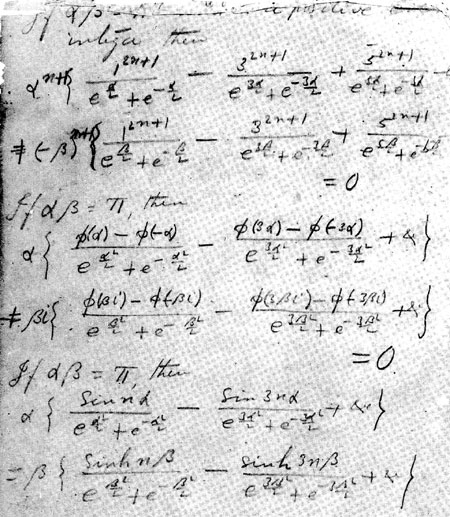 If αβ positive
integer then
α^{n+1} { 1^{2n+1}/(e^{α/2} + e^{-α/2}) − 3^{2n+1}/(e^{3α/2} + e^{-3α/2}) + 5^{2n+1}/(e^{5α/2} + e^{-5α/2}) −
+ (−β)^{n+1} { 1^{2n+1}/(e^{β/2} + e^{-β/2}) − 3^{2n+1}/(e^{3β/2} + e^{-3β/2}) + 5^{2n+1}/(e^{5β/2} + e^{-5β/2})
= 0
If αβ = π, then
α { (φ(α) − φ(−α))/(e^{α²/2} + e^{-α²/2}) − (φ(3α) − φ(−3α))/(e^{3α²/2} + e^{-3α²/2}) + &c }
+ βi { (φ(βi) − φ(−βi))/(e^{β²/2} + e^{-β²/2}) − (φ(3βi) − φ(−3βi))/(e^{3β²/2} + e^{-3β²/2}) + &c }
= 0.
If αβ = π, then
α { sin nα/(e^{α²/2} + e^{-α²/2}) − sin 3nα/(e^{3α²/2} + e^{-3α²/2}) + &c }
= β { sinh nβ/(e^{β²/2} + e^{-β²/2}) − sinh 3nβ/(e^{3β²/2} + e^{-3β²/2}) + &c }